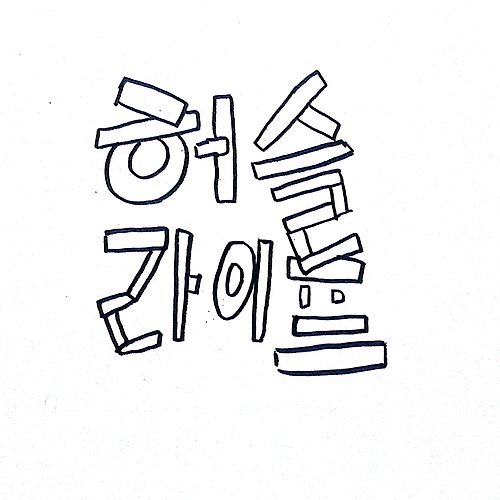 허슬
라이프